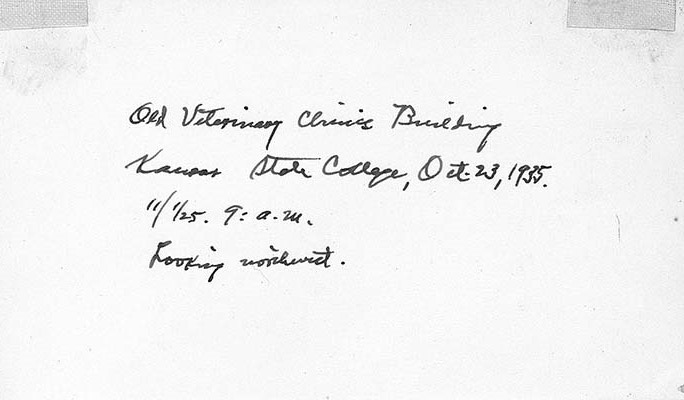 Old Veterinary Clinics Building
Kansas State College, Oct. 23, 1935.
11/1/25. 9: a.m.
Looking northwest.